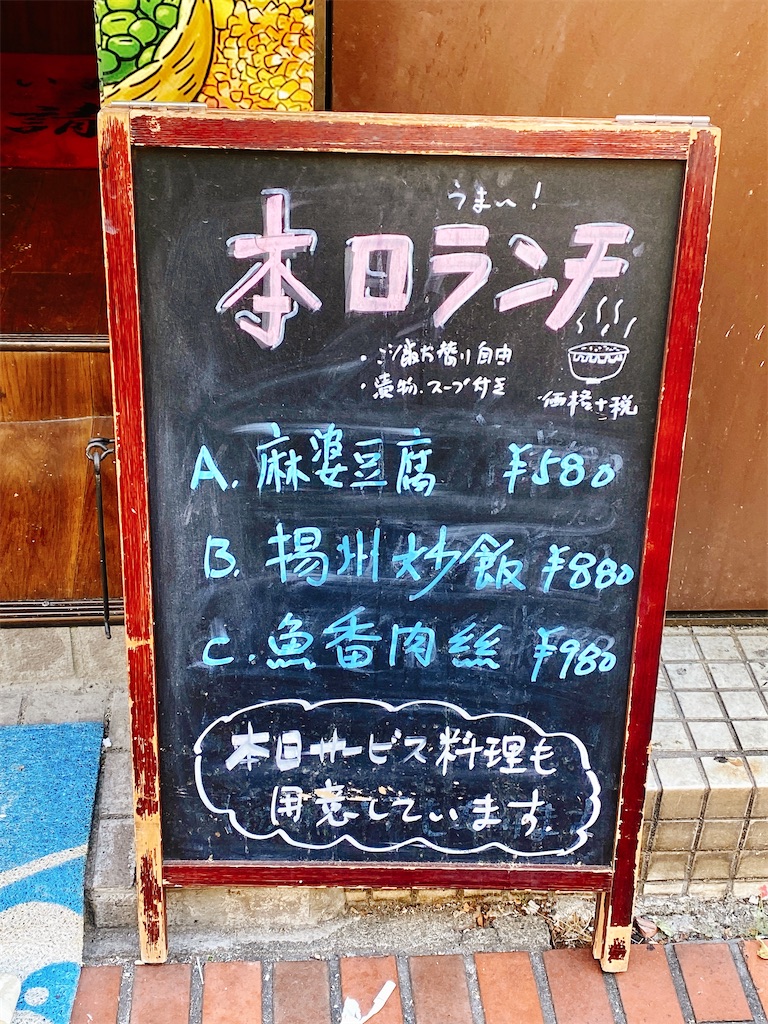 うまい!
本日ランチ
・ご飯お替り自由
・漬物.スープ付き
価格+税
A.麻婆豆腐 ¥580
B.揚州炒飯 ¥880
C.魚香肉絲 ¥980
本日サービス料理も
用意しています.